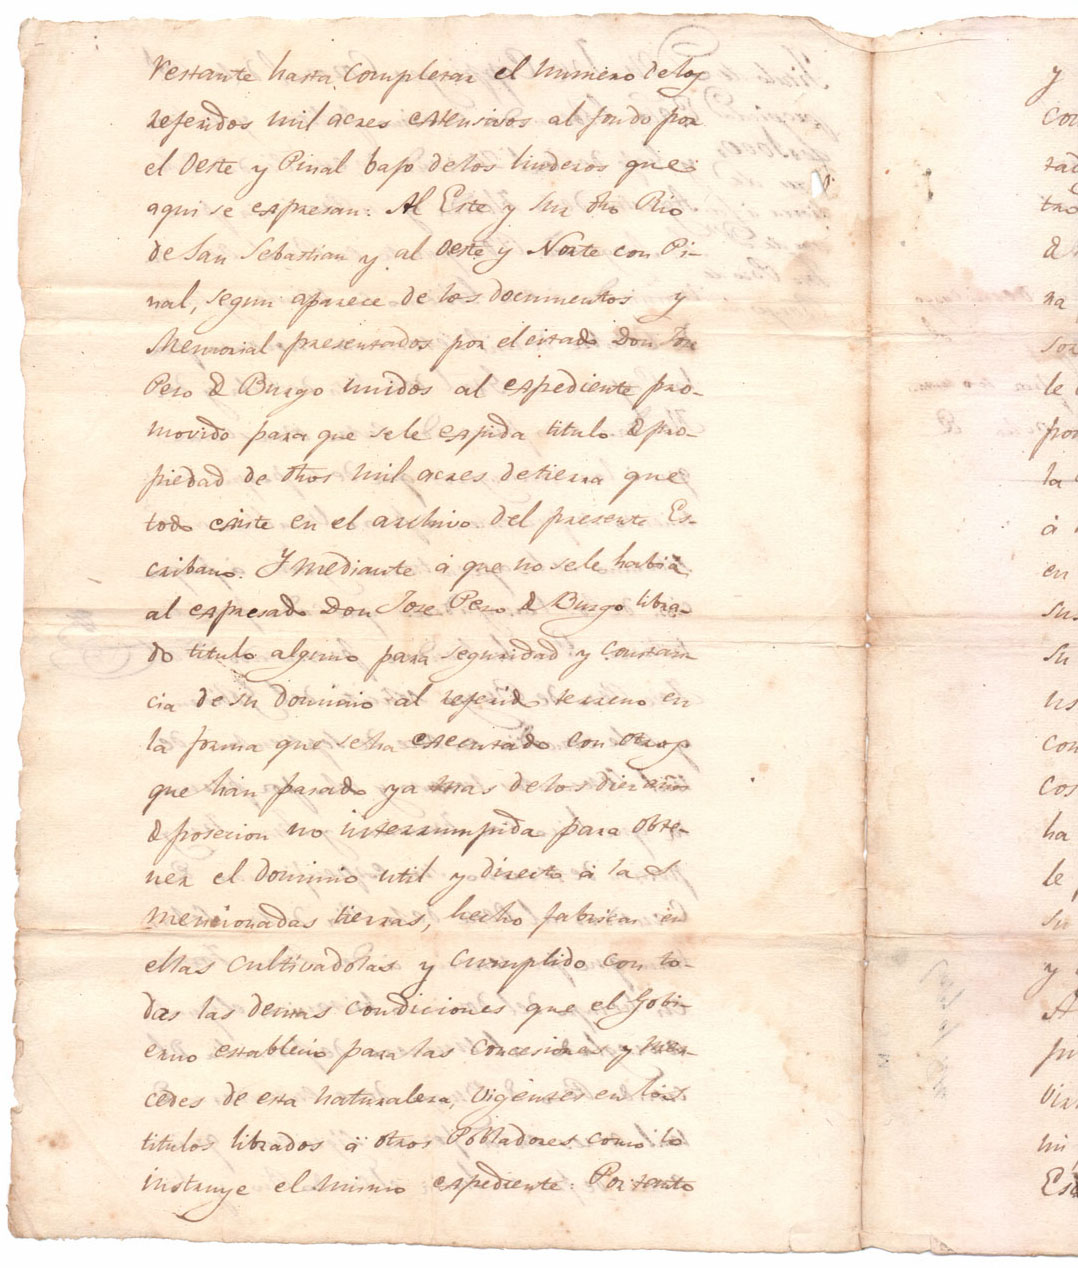 restante hasta completar el numero delos
referidos mil acres estensivos al fondo por
el Oeste y Pinal bajo delos linderos que
aqui se espresan: Al Este y Sur dho Rio
de San Sebastian y al Oeste y Norte con Pi-
nal, segun aparece de los documentos y
Memorial presentados por el citado Don Jose
Peso d Burgo unidos al espediente pro-
movido para que sele espida titulo d pro-
piedad de dhos mil acres detierra que
todo esiste en el archivo del presente Es-
cribano. Y mediante á que no sele habia
al espresado Don Jose Peso d Burgo libra-
do titulo alguno para seguridad y constan-
cia de su dominio al referido terreno en
la forma que seha ejecutado con otros
que han pasado ya mas delos diez años
d posecion no interrumpida para obte-
ner el dominio util y directo á la S
mencionadas tierras, hecho fabricas en
ellas cultivadolas y cumplido con to-
das las demas condiciones que el Gobi-
erno establecio para las concesiones y mer-
cedes de esta naturaleza, vigentes en los
titulos librados á otros Pobladores como lo
instruye el mismo espediente: Por tanto
y
la
á
en
su
ha
le
su
y